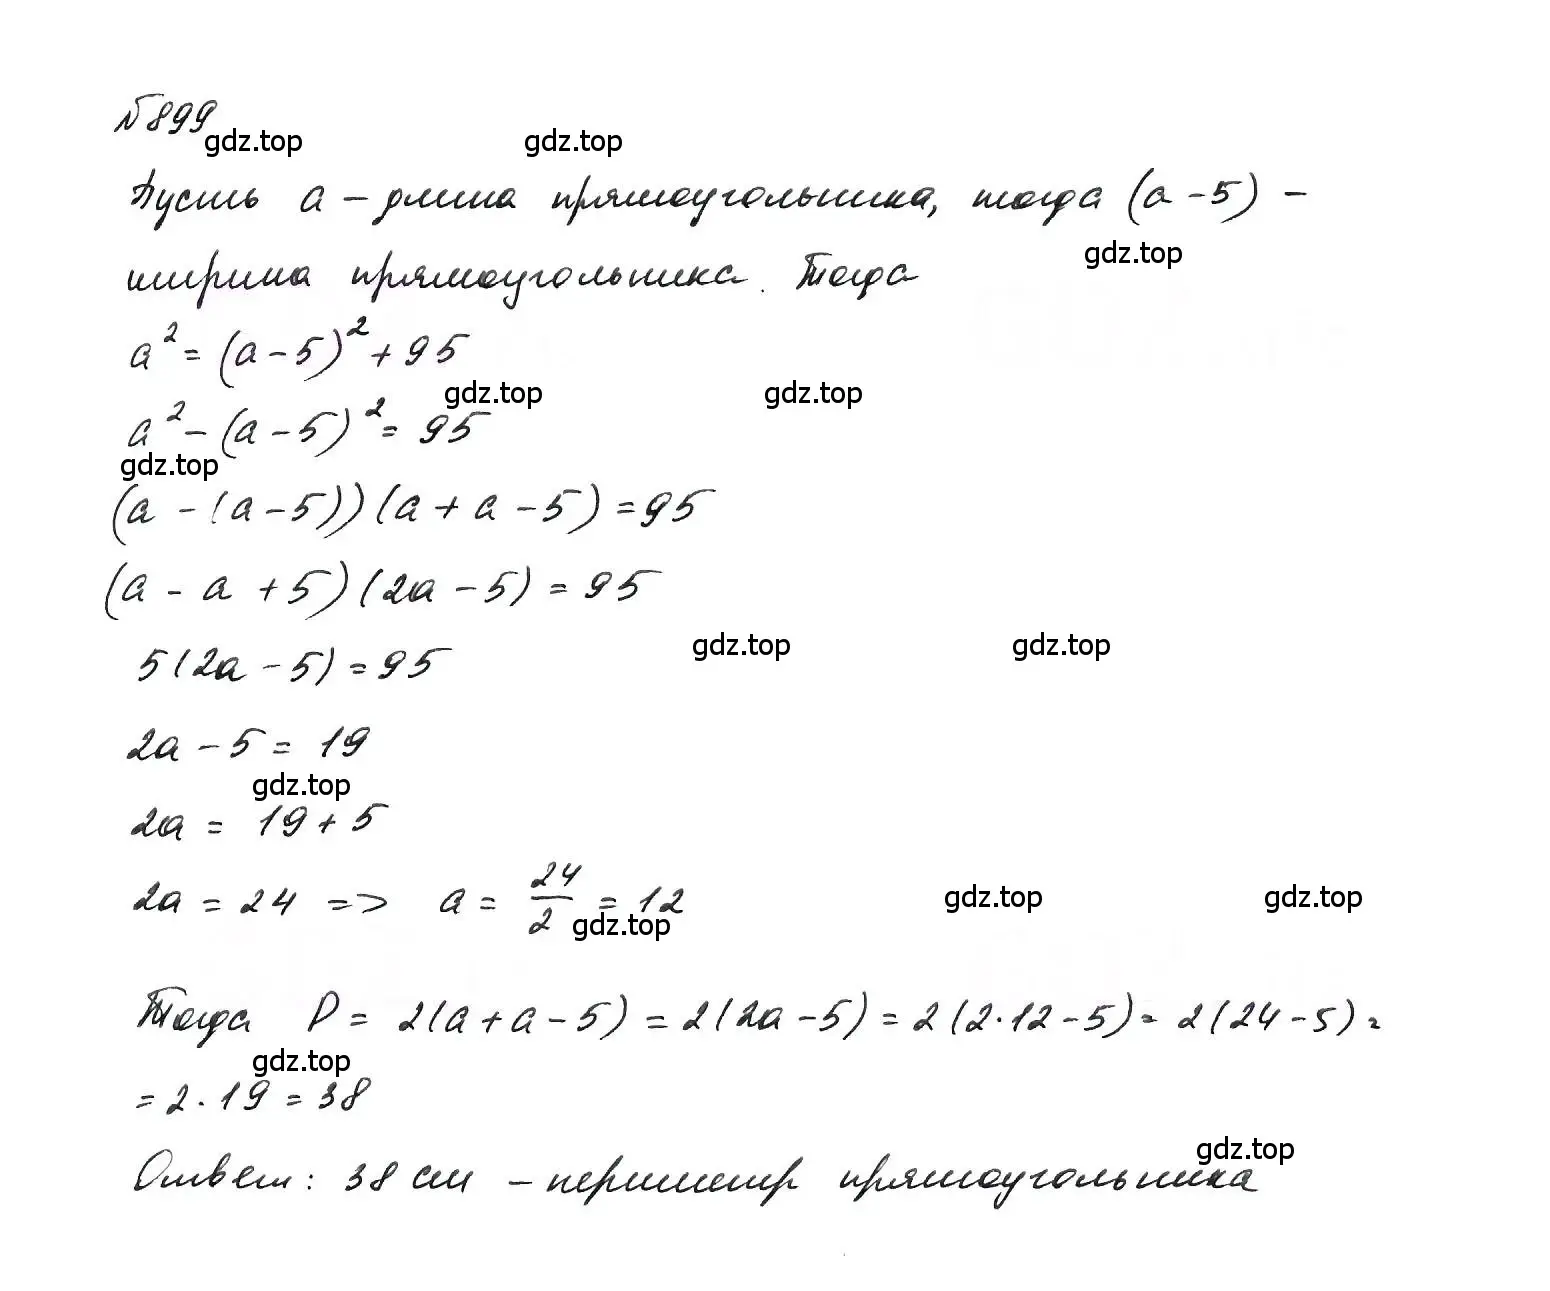 №899
gdz.top gdz.top
Пусть a – длина прямоугольника, тогда (a - 5) –
gdz.top
ширина прямоугольника. Тогда
a² = (a - 5)² + 95
gdz.top gdz.top
a² - (a - 5)² = 95
gdz.top
(a - (a - 5))(a + a - 5) = 95
(a - a + 5)(2a - 5) = 95
gdz.top gdz.top
5(2a - 5) = 95
2a - 5 = 19
gdz.top
2a = 19 + 5
2a = 24 => a = 24/2 = 12
gdz.top gdz.top
gdz.top
Тогда P = 2(a + a - 5) = 2(2a - 5) = 2(2·12 - 5) = 2(24 - 5) =
gdz.top
= 2·19 = 38
gdz.top
Ответ: 38 см – периметр прямоугольника